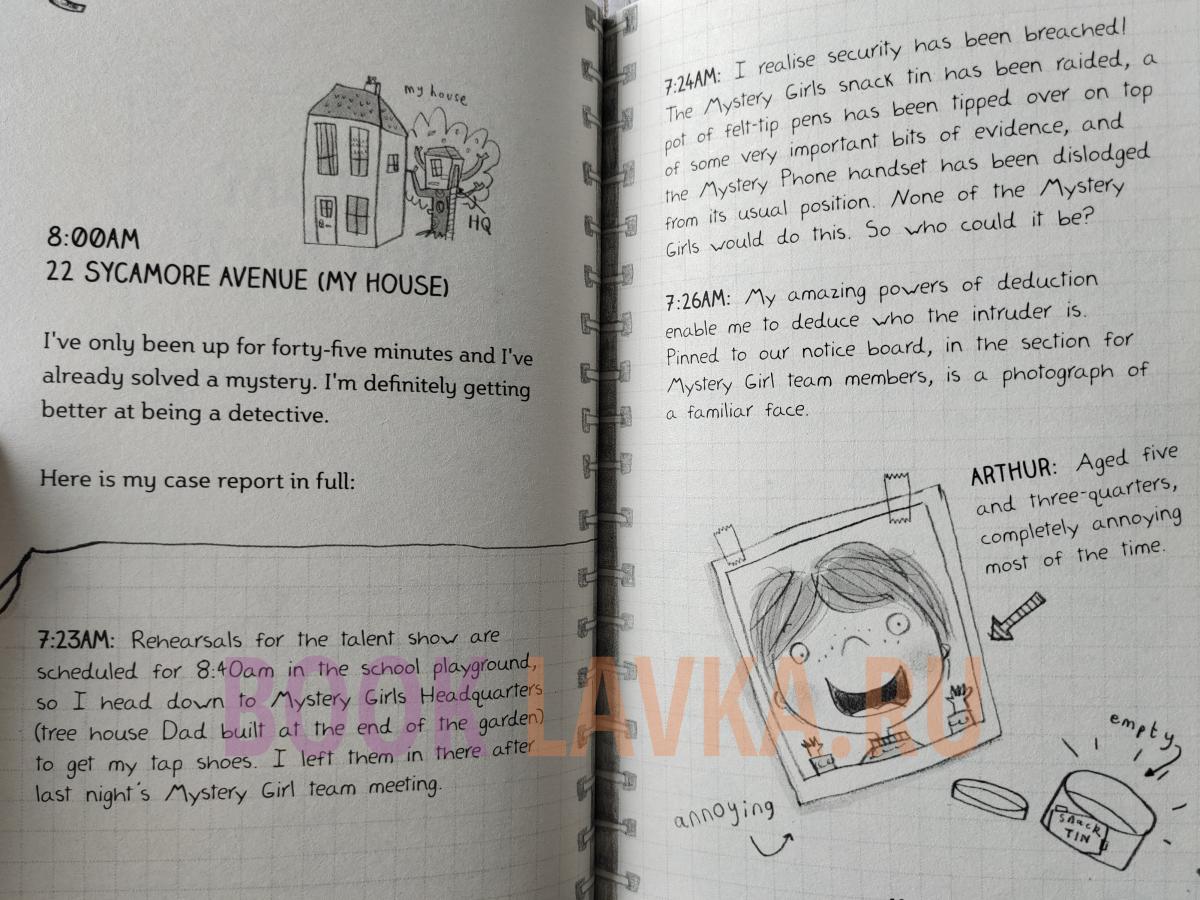 my house
HQ
8:00AM
22 SYCAMORE AVENUE (MY HOUSE)
I've only been up for forty-five minutes and I've
already solved a mystery. I'm definitely getting
better at being a detective.
Here is my case report in full:
7:23AM: Rehearsals for the talent show are
scheduled for 8:40am in the school playground,
so I head down to Mystery Girls Headquarters
(tree house Dad built at the end of the garden)
to get my tap shoes. I left them in there after
last night's Mystery Girl team meeting.
7:24AM: I realise security has been breached!
The Mystery Girls snack tin has been raided, a
pot of felt-tip pens has been tipped over on top
of some very important bits of evidence, and
the Mystery Phone handset has been dislodged
from its usual position. None of the Mystery
Girls would do this. So who could it be?
7:26AM: My amazing powers of deduction
enable me to deduce who the intruder is.
Pinned to our notice board, in the section for
Mystery Girl team members, is a photograph of
a familiar face.
ARTHUR: Aged five
and three-quarters,
completely annoying
most of the time.
annoying
empty
SNACK
TIN
BOOK LAVKA.RU